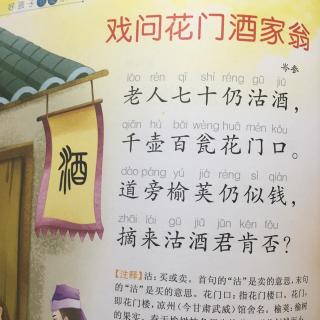 好孩子
戏问花门酒家翁
岑参
lǎo rén qī shí réng gū jiǔ
老人七十仍沽酒，
qiān hú bǎi wèng huā mén kǒu
千壶百瓮花门口。
dào páng yú jiá réng sì qián
道旁榆荚仍似钱，
zhāi lái gū jiǔ jūn kěn fǒu
摘来沽酒君肯否？
酒
【注释】沽：买或卖。首句的“沽”是卖的意思，末句
的“沽”是买的意思。花门口：指花门楼口。花门，
即花门楼，凉州（今甘肃武威）馆舍名。榆荚：榆树